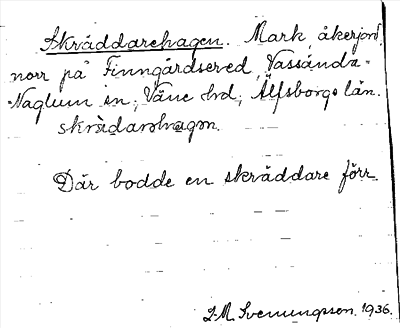 Skräddarehagen. Mark, åkerjord,
norr på Finngårdsered, Vassända-
-Naglum sn; Väne hd; Älfsborgs län.
skrädarehagen.
Där bodde en skräddare förr.
S.M. Svenungsson. 1936.